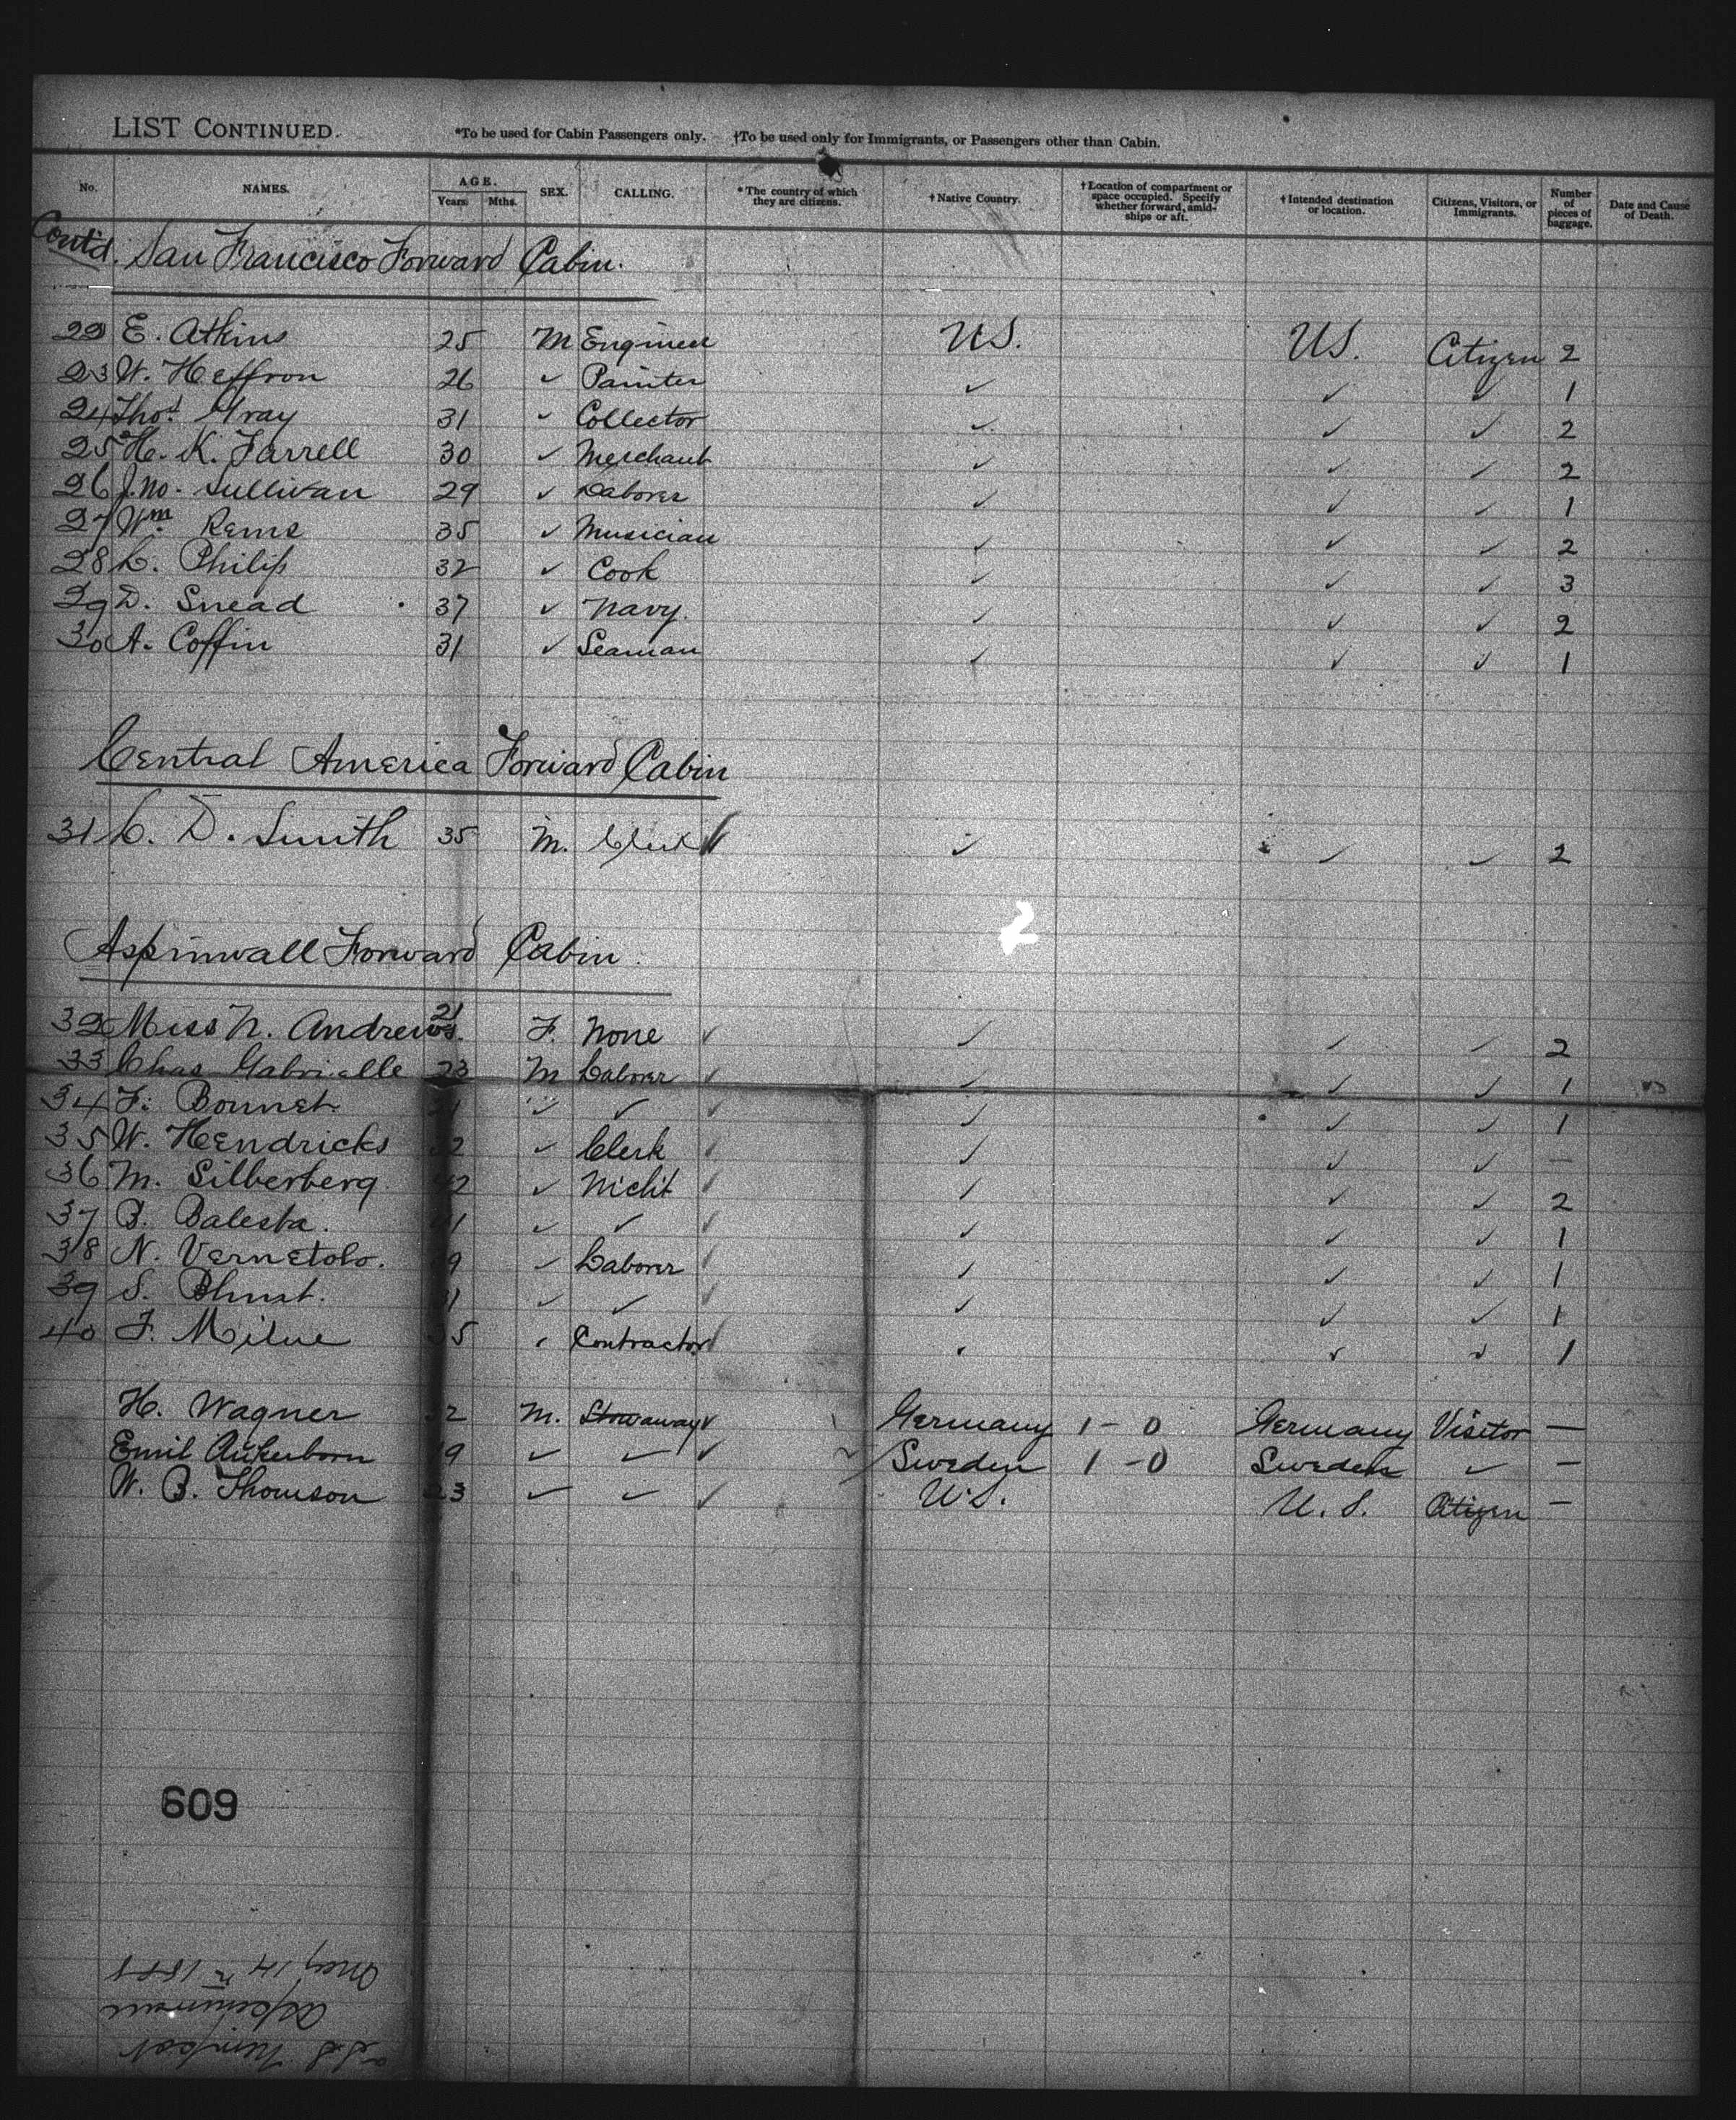 LIST CONTINUED. *To be used for Cabin Passengers only. †To be used only for Immigrants, or Passengers other than Cabin.
No. NAMES. AGE. Years. Mths. SEX. CALLING. *The country of which they are citizens. †Native Country. †Location of compartment or space occupied. Specify whether forward, amidships or aft. †Intended destination or location. Citizens, Visitors, or Immigrants. Number of pieces of baggage. Date and Cause of Death.
Cont'd. San Francisco Forward Cabin.
22 E. Atkins 25 M Engineer U.S. U.S. Citizen 2
23 W. Heffron 26 ✓ Painter ✓ ✓ ✓ 1
24 Thos. Gray 31 ✓ Collector ✓ ✓ ✓ 2
25 H. K. Farrell 30 ✓ Merchant ✓ ✓ ✓ 2
26 Jno. Sullivan 29 ✓ Laborer ✓ ✓ ✓ 1
27 Wm. Rems 35 ✓ Musician ✓ ✓ ✓ 2
28 L. Philip 32 ✓ Cook ✓ ✓ ✓ 3
29 D. Snead 37 ✓ Navy. ✓ ✓ ✓ 2
30 A. Coffin 31 ✓ Seaman ✓ ✓ ✓ 1
Central America Forward Cabin
31 C. D. Smith 35 M. Clerk ✓ ✓ ✓ ✓ 2
2
Aspinwall Forward Cabin.
32 Miss N. Andrews. 21 F. None ✓ ✓ ✓ ✓ 2
33 Chas Gabrielle 23 M Laborer ✓ ✓ ✓ ✓ 1
34 F. Bonnet ✓ ✓ ✓ ✓ ✓ ✓ 1
35 W. Hendricks ✓ Clerk ✓ ✓ ✓ ✓ —
36 M. Silberberg 42 ✓ Mcht ✓ ✓ ✓ ✓ 2
37 B. Balesta. ✓ ✓ ✓ ✓ ✓ ✓ 1
38 N. Vernetolo. ✓ Laborer ✓ ✓ ✓ ✓ 1
39 S. ✓ ✓ ✓ ✓ ✓ ✓ 1
40 F. Milne 35 ✓ Contractor ✓ ✓ ✓ ✓ 1
H. Wagner M. Stowaway ✓ Germany 1 - 0 Germany Visitor —
Emil ✓ ✓ ✓ Sweden 1 - 0 Sweden ✓ —
W. B. Thomson 23 ✓ ✓ ✓ U.S. U.S. Citizen —
609
S.S. Newport
Aspinwall
May 14th 1888